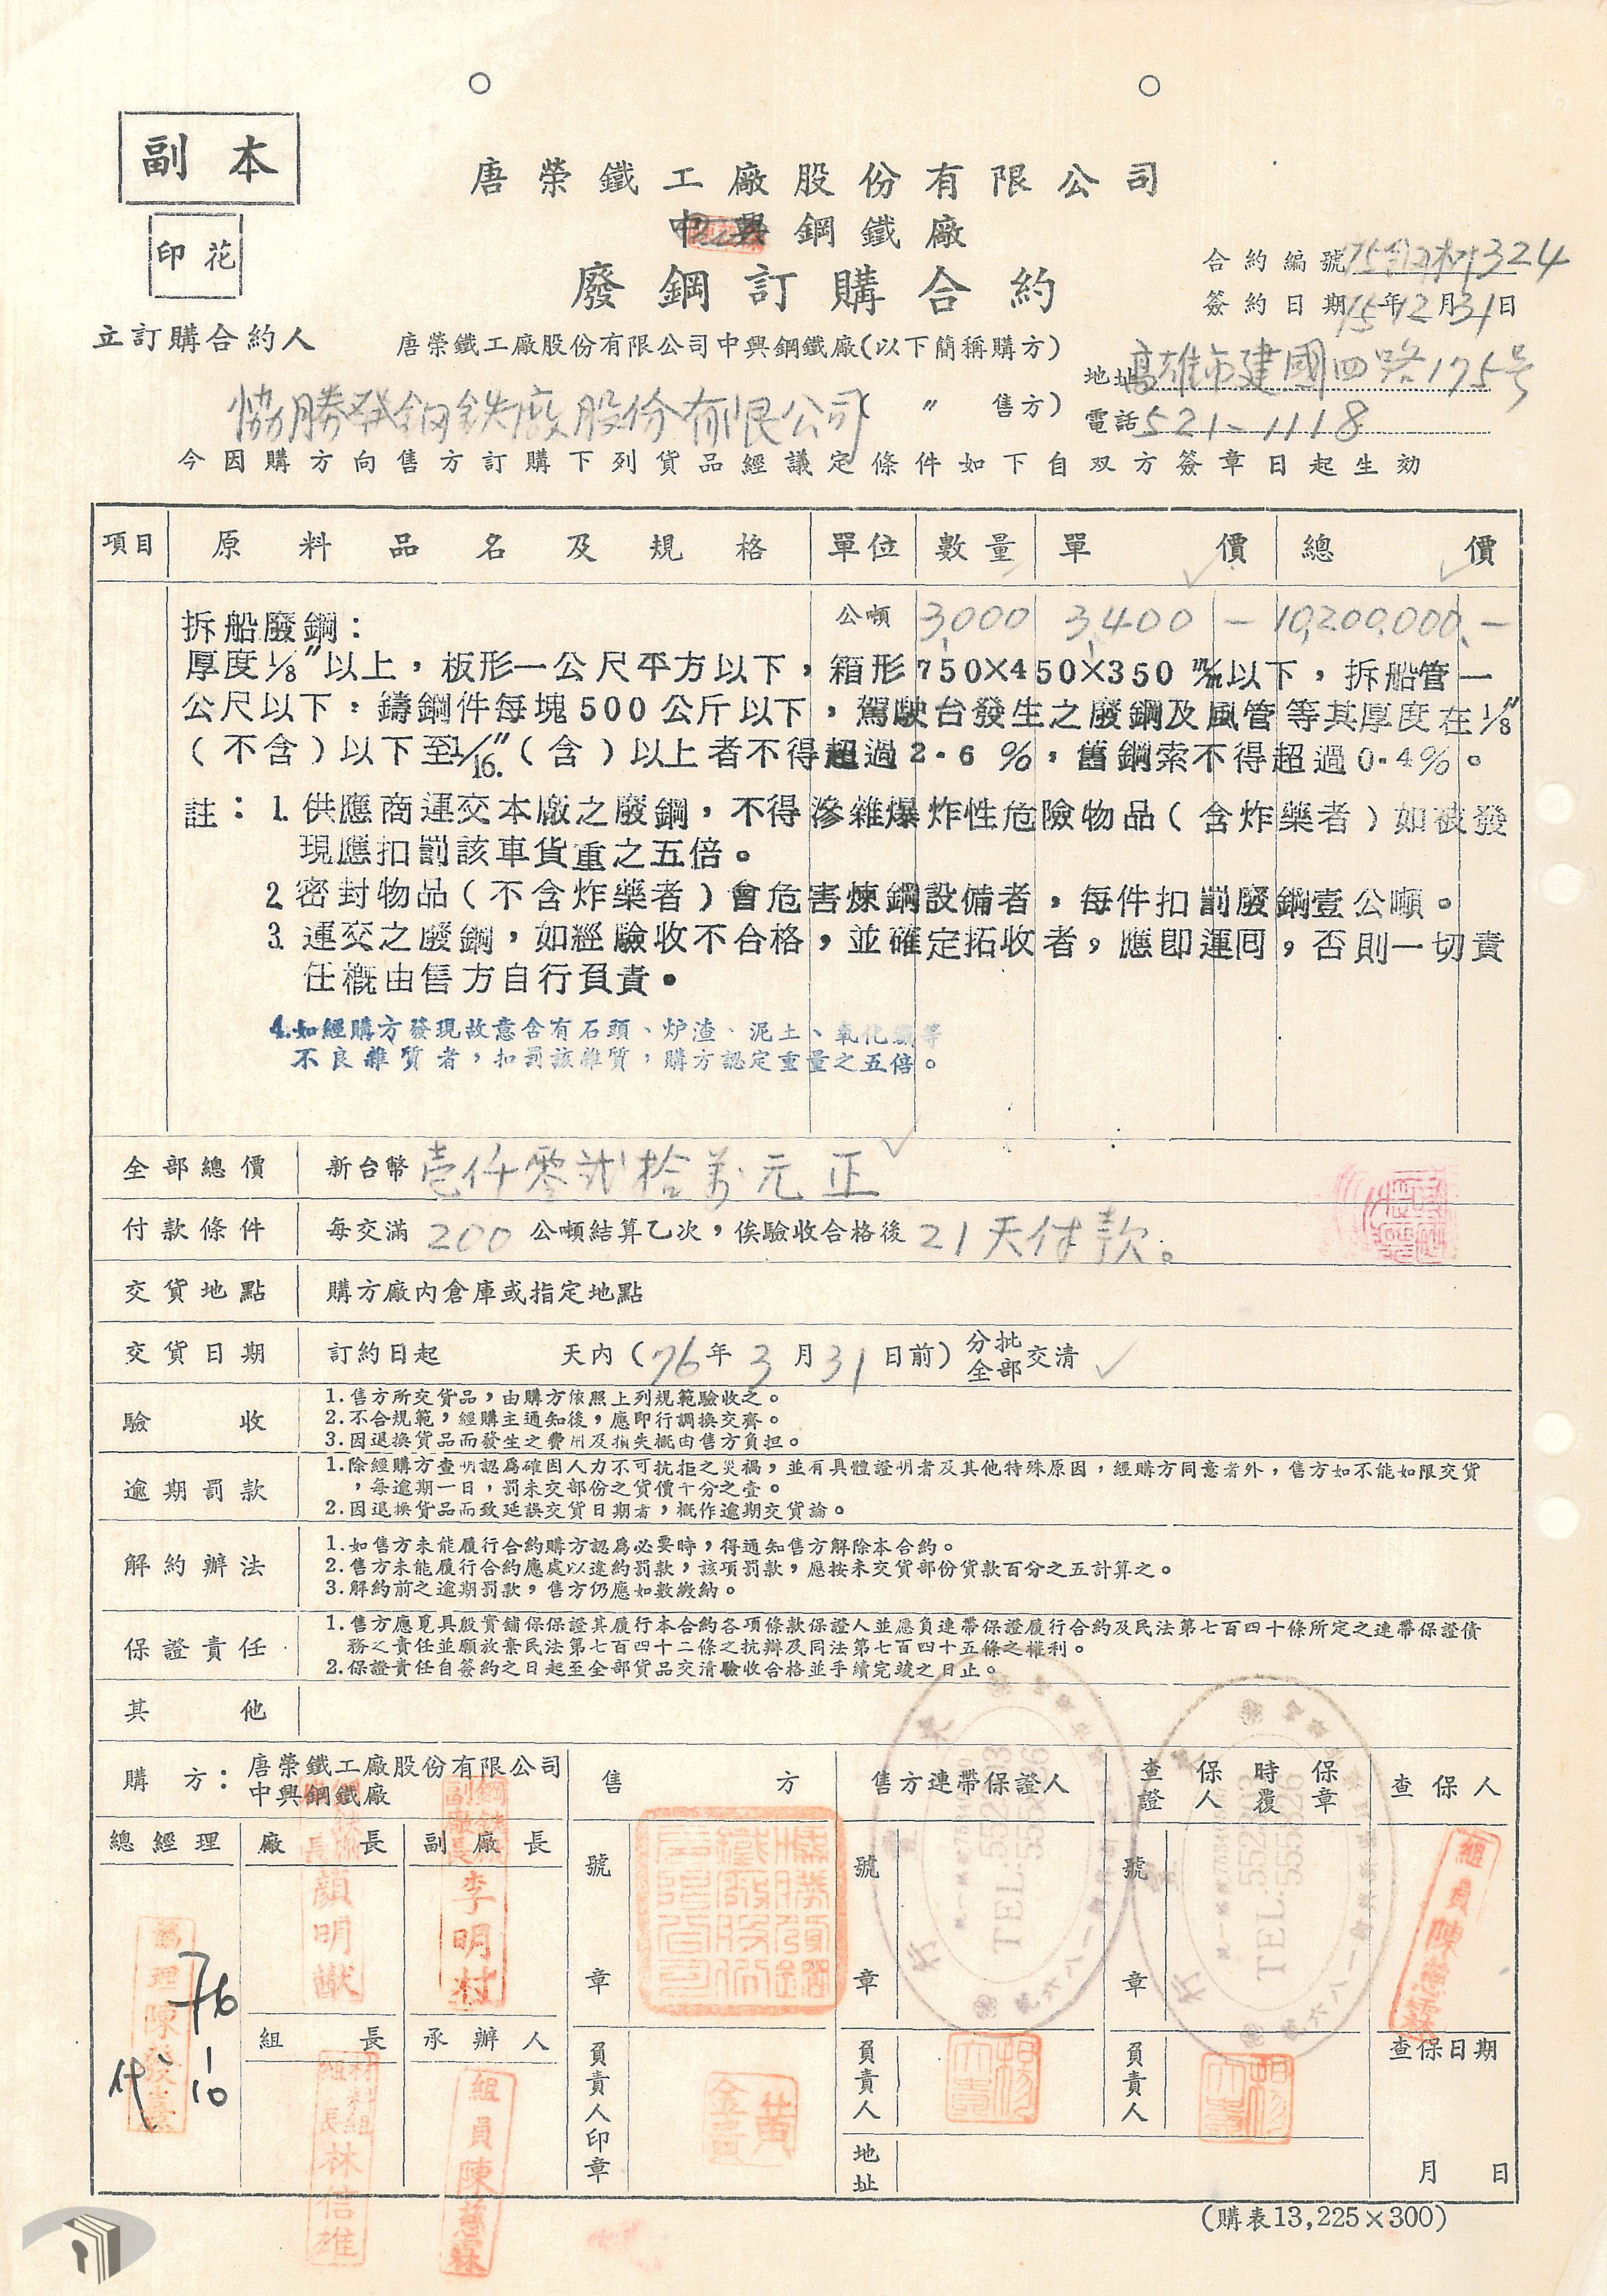 副本
印花
唐榮鐵工廠股份有限公司
鋼鐵廠
廢鋼訂購合約
合約編號 324
簽約日期75年12月31日
立訂購合約人
唐榮鐵工廠股份有限公司中興鋼鐵廠(以下簡稱購方)
地址高雄市建國四路175号
協勝發鋼鉄廠股份有限公司( 〃 售方)
電話521-1118
今因購方向售方訂購下列貨品經議定條件如下自双方簽章日起生効
項目 原料品名及規格 單位 數量 單價 總價
公噸 3,000 3,400 — 10,200,000 —
拆船廢鋼：
厚度1/8″以上，板形一公尺平方以下，箱形750×450×350 m/m以下，拆船管一
公尺以下，鑄鋼件每塊500公斤以下，駕駛台發生之廢鋼及風管等其厚度在1/8″
(不含)以下至1/16″(含)以上者不得超過2.6%，舊鋼索不得超過0.4%。
註：1.供應商運交本廠之廢鋼，不得滲雜爆炸性危險物品(含炸藥者)如被發
現應扣罰該車貨重之五倍。
2.密封物品(不含炸藥者)會危害煉鋼設備者，每件扣罰廢鋼壹公噸。
3.運交之廢鋼，如經驗收不合格，並確定拓收者，應即運囘，否則一切責
任概由售方自行負責。
4.如經購方發現故意含有石頭、炉渣、泥土、氧化鐵等
不良雜質者，扣罰該雜質，購方認定重量之五倍。
全部總價 新台幣壹仟零貳拾萬元正
付款條件 每交滿200公噸結算乙次，俟驗收合格後21天付款。
交貨地點 購方廠內倉庫或指定地點
交貨日期 訂約日起 天內(76年3月31日前)分批全部交清
驗收
1.售方所交貨品，由購方依照上列規範驗收之。
2.不合規範，經購主通知後，應即行調換交齊。
3.因退換貨品而發生之費用及損失概由售方負担。
逾期罰款
1.除經購方查明認為確因人力不可抗拒之災禍，並有具體證明者及其他特殊原因，經購方同意者外，售方如不能如限交貨
，每逾期一日，罰未交部份之貨價千分之壹。
2.因退換貨品而致延誤交貨日期者，概作逾期交貨論。
解約辦法
1.如售方未能履行合約購方認為必要時，得通知售方解除本合約。
2.售方未能履行合約應處以違約罰款，該項罰款，應按未交貨部份貨款百分之五計算之。
3.解約前之逾期罰款，售方仍應如數繳納。
保證責任
1.售方應覓具殷實舖保保證其履行本合約各項條款保證人並應負連帶保證履行合約及民法第七百四十條所定之連帶保證債
務之責任並願放棄民法第七百四十二條之抗辯及同法第七百四十五條之權利。
2.保證責任自簽約之日起至全部貨品交清驗收合格並手續完竣之日止。
其他
購方：唐榮鐵工廠股份有限公司
中興鋼鐵廠
售方
售方連帶保證人
查保時保
證人覆章
查保人
總經理 廠長 副廠長
號章 號章 號章
顏明猷
副廠長 李明村
組員陳慈霖
76
1
10
代
組長 承辦人
材料組組長林信雄
組員陳慈霖
負責人印章
黃金寶
負責人
地址
負責人
查保日期
月 日
(購表13,225×300)